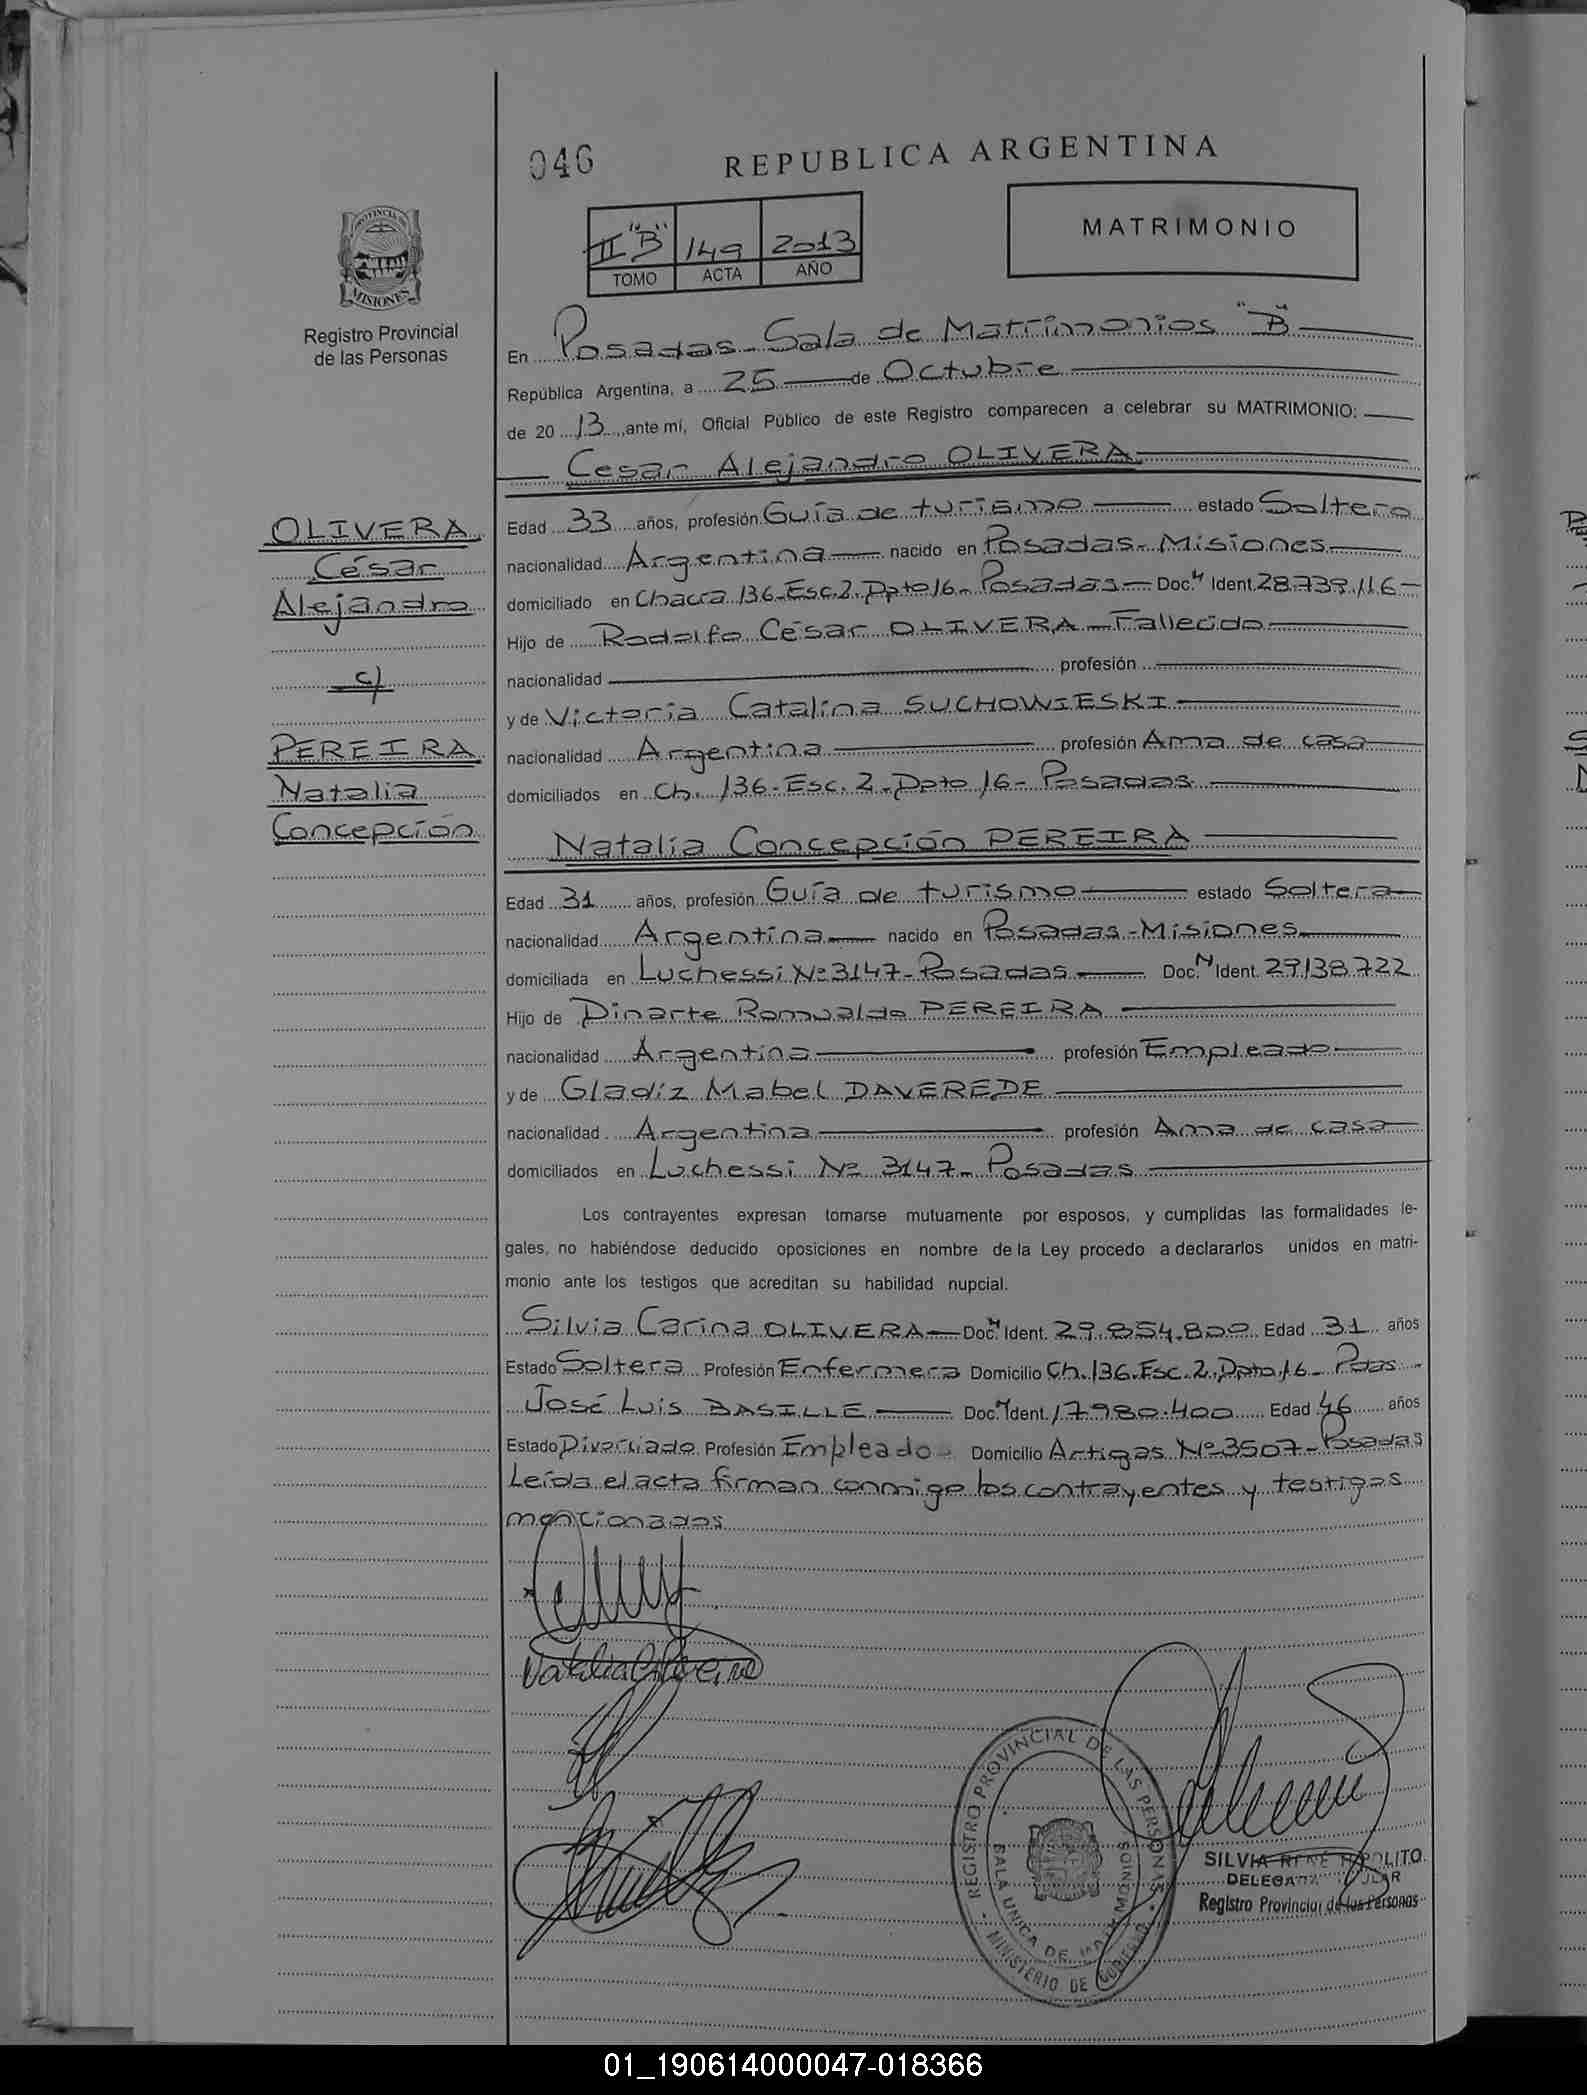 046
REPUBLICA ARGENTINA
PROVINCIA DE
MISIONES
Registro Provincial
de las Personas
II "B" 149 2013
TOMO ACTA AÑO
MATRIMONIO
En Posadas - Sala de Matrimonios "B"
República Argentina, a 25 de Octubre
de 20 13 ante mí, Oficial Público de este Registro comparecen a celebrar su MATRIMONIO:
Cesar Alejandro OLIVERA
OLIVERA
César
Alejandro
c/
PEREIRA
Natalia
Concepción
Edad 33 años, profesión Guía de turismo estado Soltero
nacionalidad Argentina nacido en Posadas - Misiones
domiciliado en Chacra 136-Esc.2. Dpto 16- Posadas Doc. N Ident. 28.739.116
Hijo de Rodolfo César OLIVERA - Fallecido
nacionalidad profesión
y de Victoria Catalina SUCHOWIESKI
nacionalidad Argentina profesión Ama de casa
domiciliados en Ch. 136- Esc. 2. Dpto 16- Posadas
Natalia Concepción PEREIRA
Edad 31 años, profesión Guía de turismo estado Soltera
nacionalidad Argentina nacido en Posadas - Misiones
domiciliada en Luchessi Nº 3147- Posadas Doc. N Ident. 29.138.722
Hijo de Dinarte Romualdo PEREIRA
nacionalidad Argentina profesión Empleado
y de Gladiz Mabel DAVEREDE
nacionalidad Argentina profesión Ama de casa
domiciliados en Luchessi Nº 3147- Posadas
Los contrayentes expresan tomarse mutuamente por esposos, y cumplidas las formalidades le-
gales, no habiéndose deducido oposiciones en nombre de la Ley procedo a declararlos unidos en matri-
monio ante los testigos que acreditan su habilidad nupcial.
Silvia Carina OLIVERA Doc. N Ident. 29.854.800 Edad 31 años
Estado Soltera Profesión Enfermera Domicilio Ch. 136. Esc. 2. Dpto 16- Pdas
José Luis BASILLE Doc. N Ident. 17.980.400 Edad 46 años
Estado Divorciado Profesión Empleado Domicilio Artigas Nº 3507- Posadas
Leída el acta firman conmigo los contrayentes y testigos
mencionados
REGISTRO PROVINCIAL DE LAS PERSONAS
SALA UNICA DE MATRIMONIOS
MINISTERIO DE GOBIERNO
SILVIA RENÉ
DELEGADA
Registro Provincial de las Personas
01_190614000047-018366